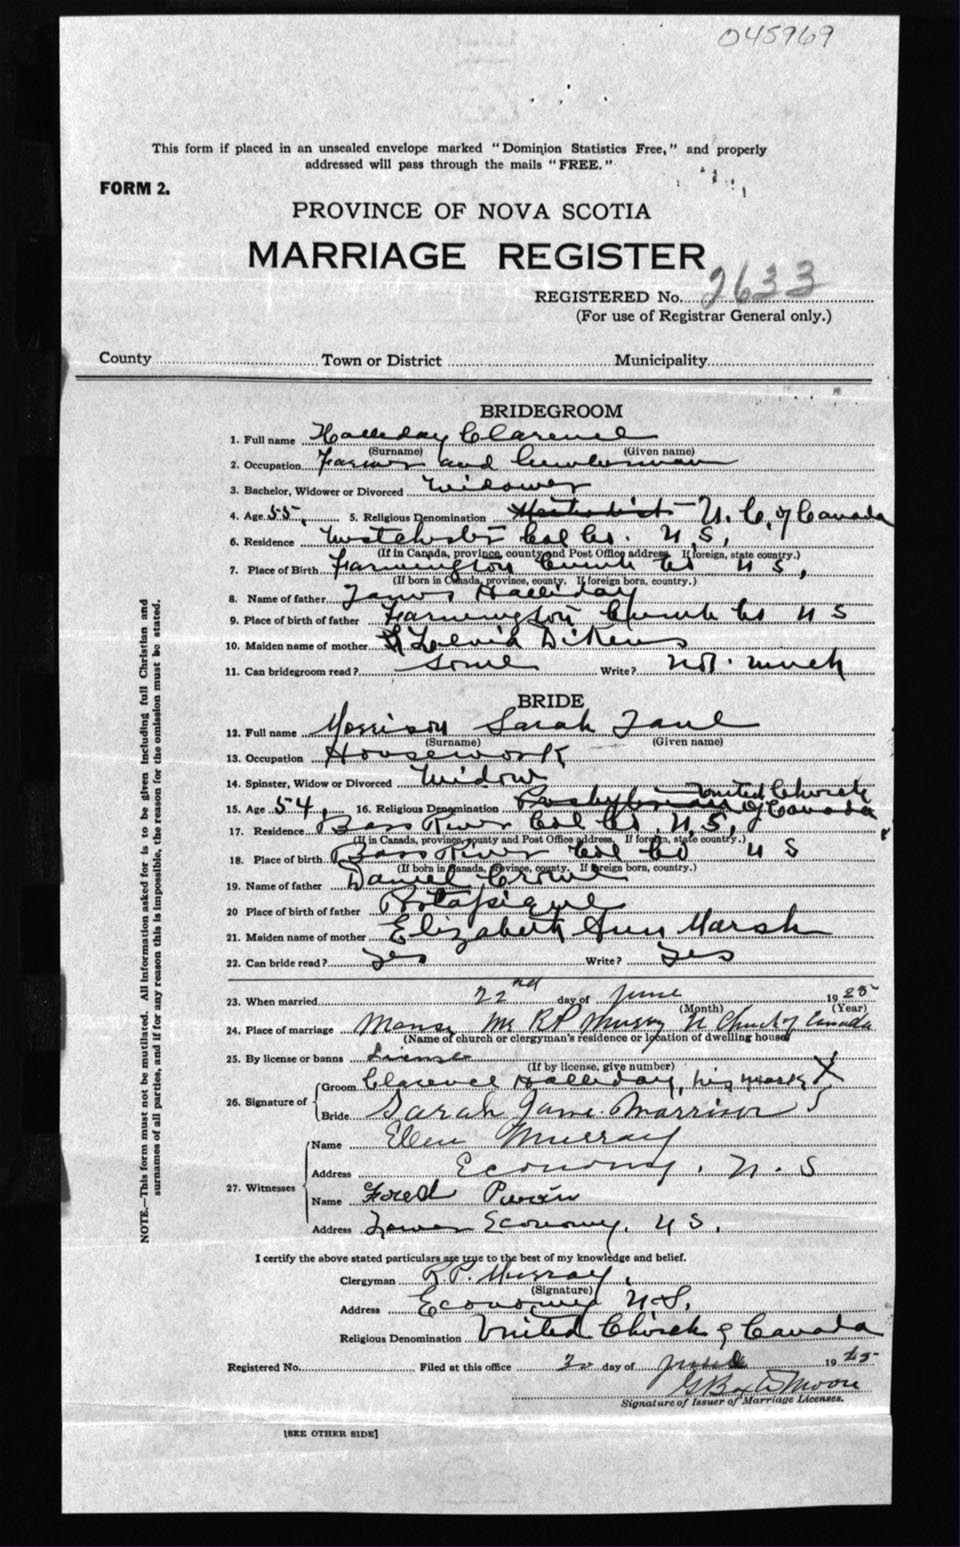 045969
This form if placed in an unsealed envelope marked "Dominion Statistics Free," and properly
addressed will pass through the mails "FREE."
FORM 2.
PROVINCE OF NOVA SCOTIA
MARRIAGE REGISTER
REGISTERED No. 2633
(For use of Registrar General only.)
County Town or District Municipality
BRIDEGROOM
1. Full name Halliday Clarence
(Surname) (Given name)
2. Occupation Farmer and Lumberman
3. Bachelor, Widower or Divorced Widower
4. Age 55. 5. Religious Denomination Methodist U. C. of Canada
6. Residence Westchester Col Co. N.S.
(If in Canada, province, county and Post Office address. If foreign, state country.)
7. Place of Birth Farmington Cumb Co N S,
(If born in Canada, province, county. If foreign born, country.)
8. Name of father James Halliday
9. Place of birth of father Farmington Cumb Co N S
10. Maiden name of mother Dickens
11. Can bridegroom read? Some Write? Not much
BRIDE
12. Full name Morrison Sarah Jane
(Surname) (Given name)
13. Occupation Housework
14. Spinster, Widow or Divorced Widow
United Church
15. Age 54. 16. Religious Denomination Presbyterian of Canada
17. Residence Bass River Col Co, N,S,
(If in Canada, province, county and Post Office address. If foreign, state country.)
18. Place of birth Bass River Col Co N S
(If born in Canada, province, county. If foreign born, country.)
19. Name of father Daniel Crowe
20 Place of birth of father Portapique
21. Maiden name of mother Elizabeth Ann Marsh
22. Can bride read? Yes Write? Yes
23. When married 22nd day of June 1925
(Month) (Year)
24. Place of marriage Manse Mr R P Murray U Church of Canada
(Name of church or clergyman's residence or location of dwelling house)
25. By license or banns License
(If by license, give number)
26. Signature of
Groom Clarence Halliday, his mark X
Bride Sarah Jane Morrison
27. Witnesses
Name Ellen Murray
Address Economy, N. S
Name Fred
Address Lower Economy, N S.
I certify the above stated particulars are true to the best of my knowledge and belief.
Clergyman R. P. Murray
(Signature)
Address Economy N.S.
Religious Denomination United Church of Canada
Registered No. Filed at this office 30 day of June 1925
G Baxter Moore
Signature of Issuer of Marriage Licenses.
[SEE OTHER SIDE]
NOTE.—This form must not be mutilated. All information asked for is to be given including full Christian and
surnames of all parties, and if for any reason this is impossible, the reason for the omission must be stated.